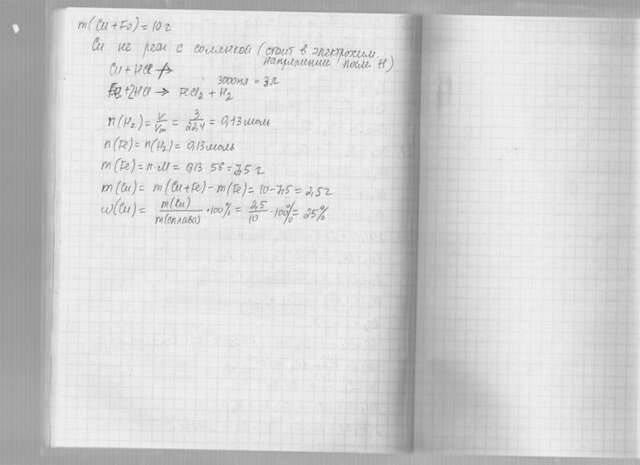 m(Cu+Fe)=10г
Cu не реаг с солянкой (стоит в электрохим.
напряжение после H)
Cu+HCl ↛
3000мл=3л
Fe+2HCl → FeCl₂ + H₂
n(H₂)= V/Vm = 3/22,4 = 0,13моль
n(Fe)=n(H₂)=0,13моль
m(Fe)=n·M=0,13·56=7,5г
m(Cu)= m(Cu+Fe)-m(Fe)=10-7,5=2,5г
ω(Cu)= m(Cu)/m(сплава) ·100%= 2,5/10 ·100%=25%